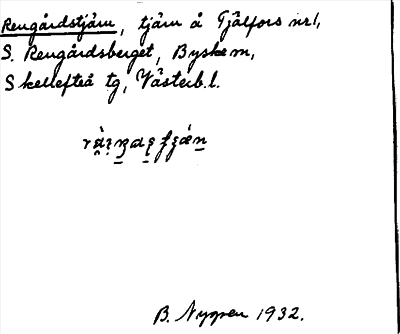 Rengårdstjärn, tjärn å Fjälfors nr 1,
S. Rengårdsberget, Byske m,
Skellefteå tg, Västerb. l.
B. Nygren 1932.